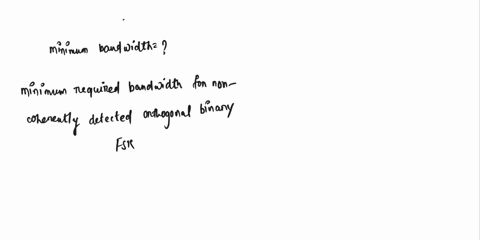 minimum bandwidth = ?
minimum required bandwidth for non-
coherently detected orthogonal binary
FSK